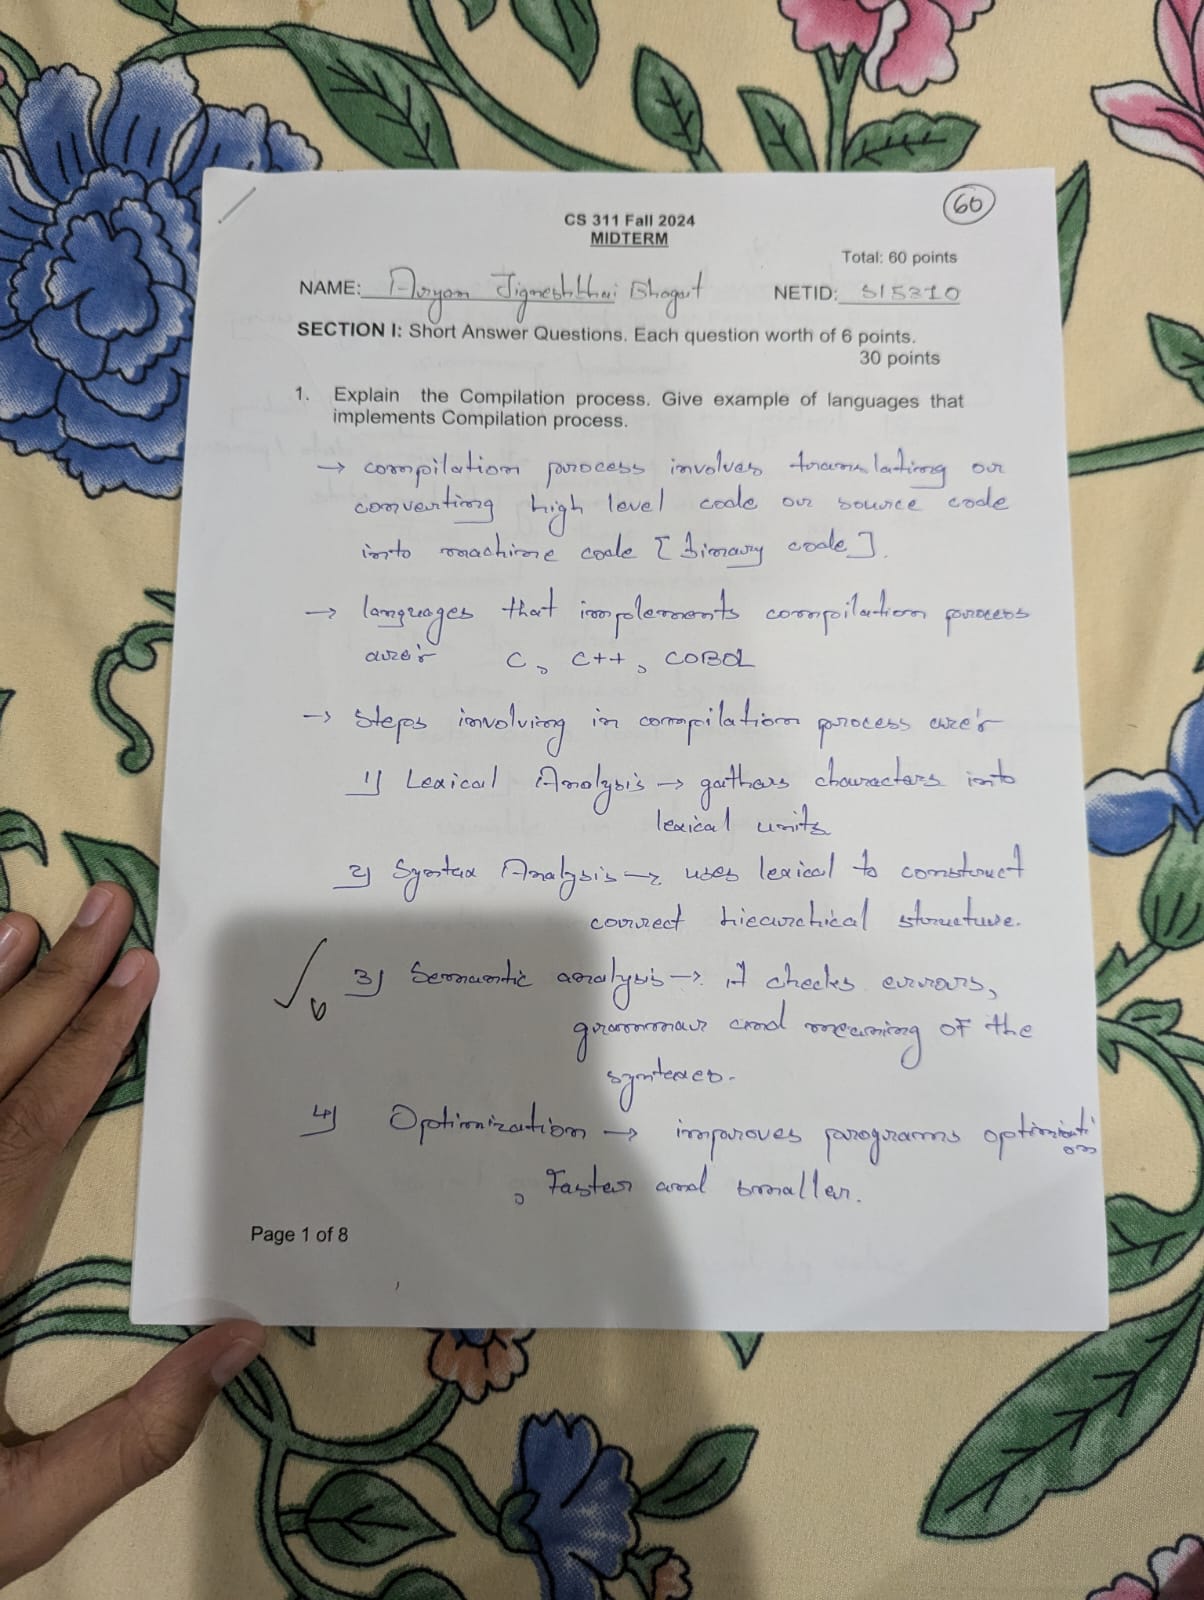 60
CS 311 Fall 2024
MIDTERM
Total: 60 points
NAME: Aryan Jigneshbhai Bhagat NETID: S15310
SECTION I: Short Answer Questions. Each question worth of 6 points.
30 points
1. Explain the Compilation process. Give example of languages that
implements Compilation process.
→ compilation process involves translating or
converting high level code or source code
into machine code [Binary code].
→ languages that implements compilation process
are:- C, C++, COBOL
→ Steps involving in compilation process are:-
1) Lexical Analysis → gathers characters into
lexical units
2) Syntax Analysis → uses lexical to construct
correct hiearchical structure.
3) Semantic analysis → it checks errors,
grammar and meaning of the
syntexes.
4) Optimization → improves programs optimization
, Faster and smaller.
Page 1 of 8